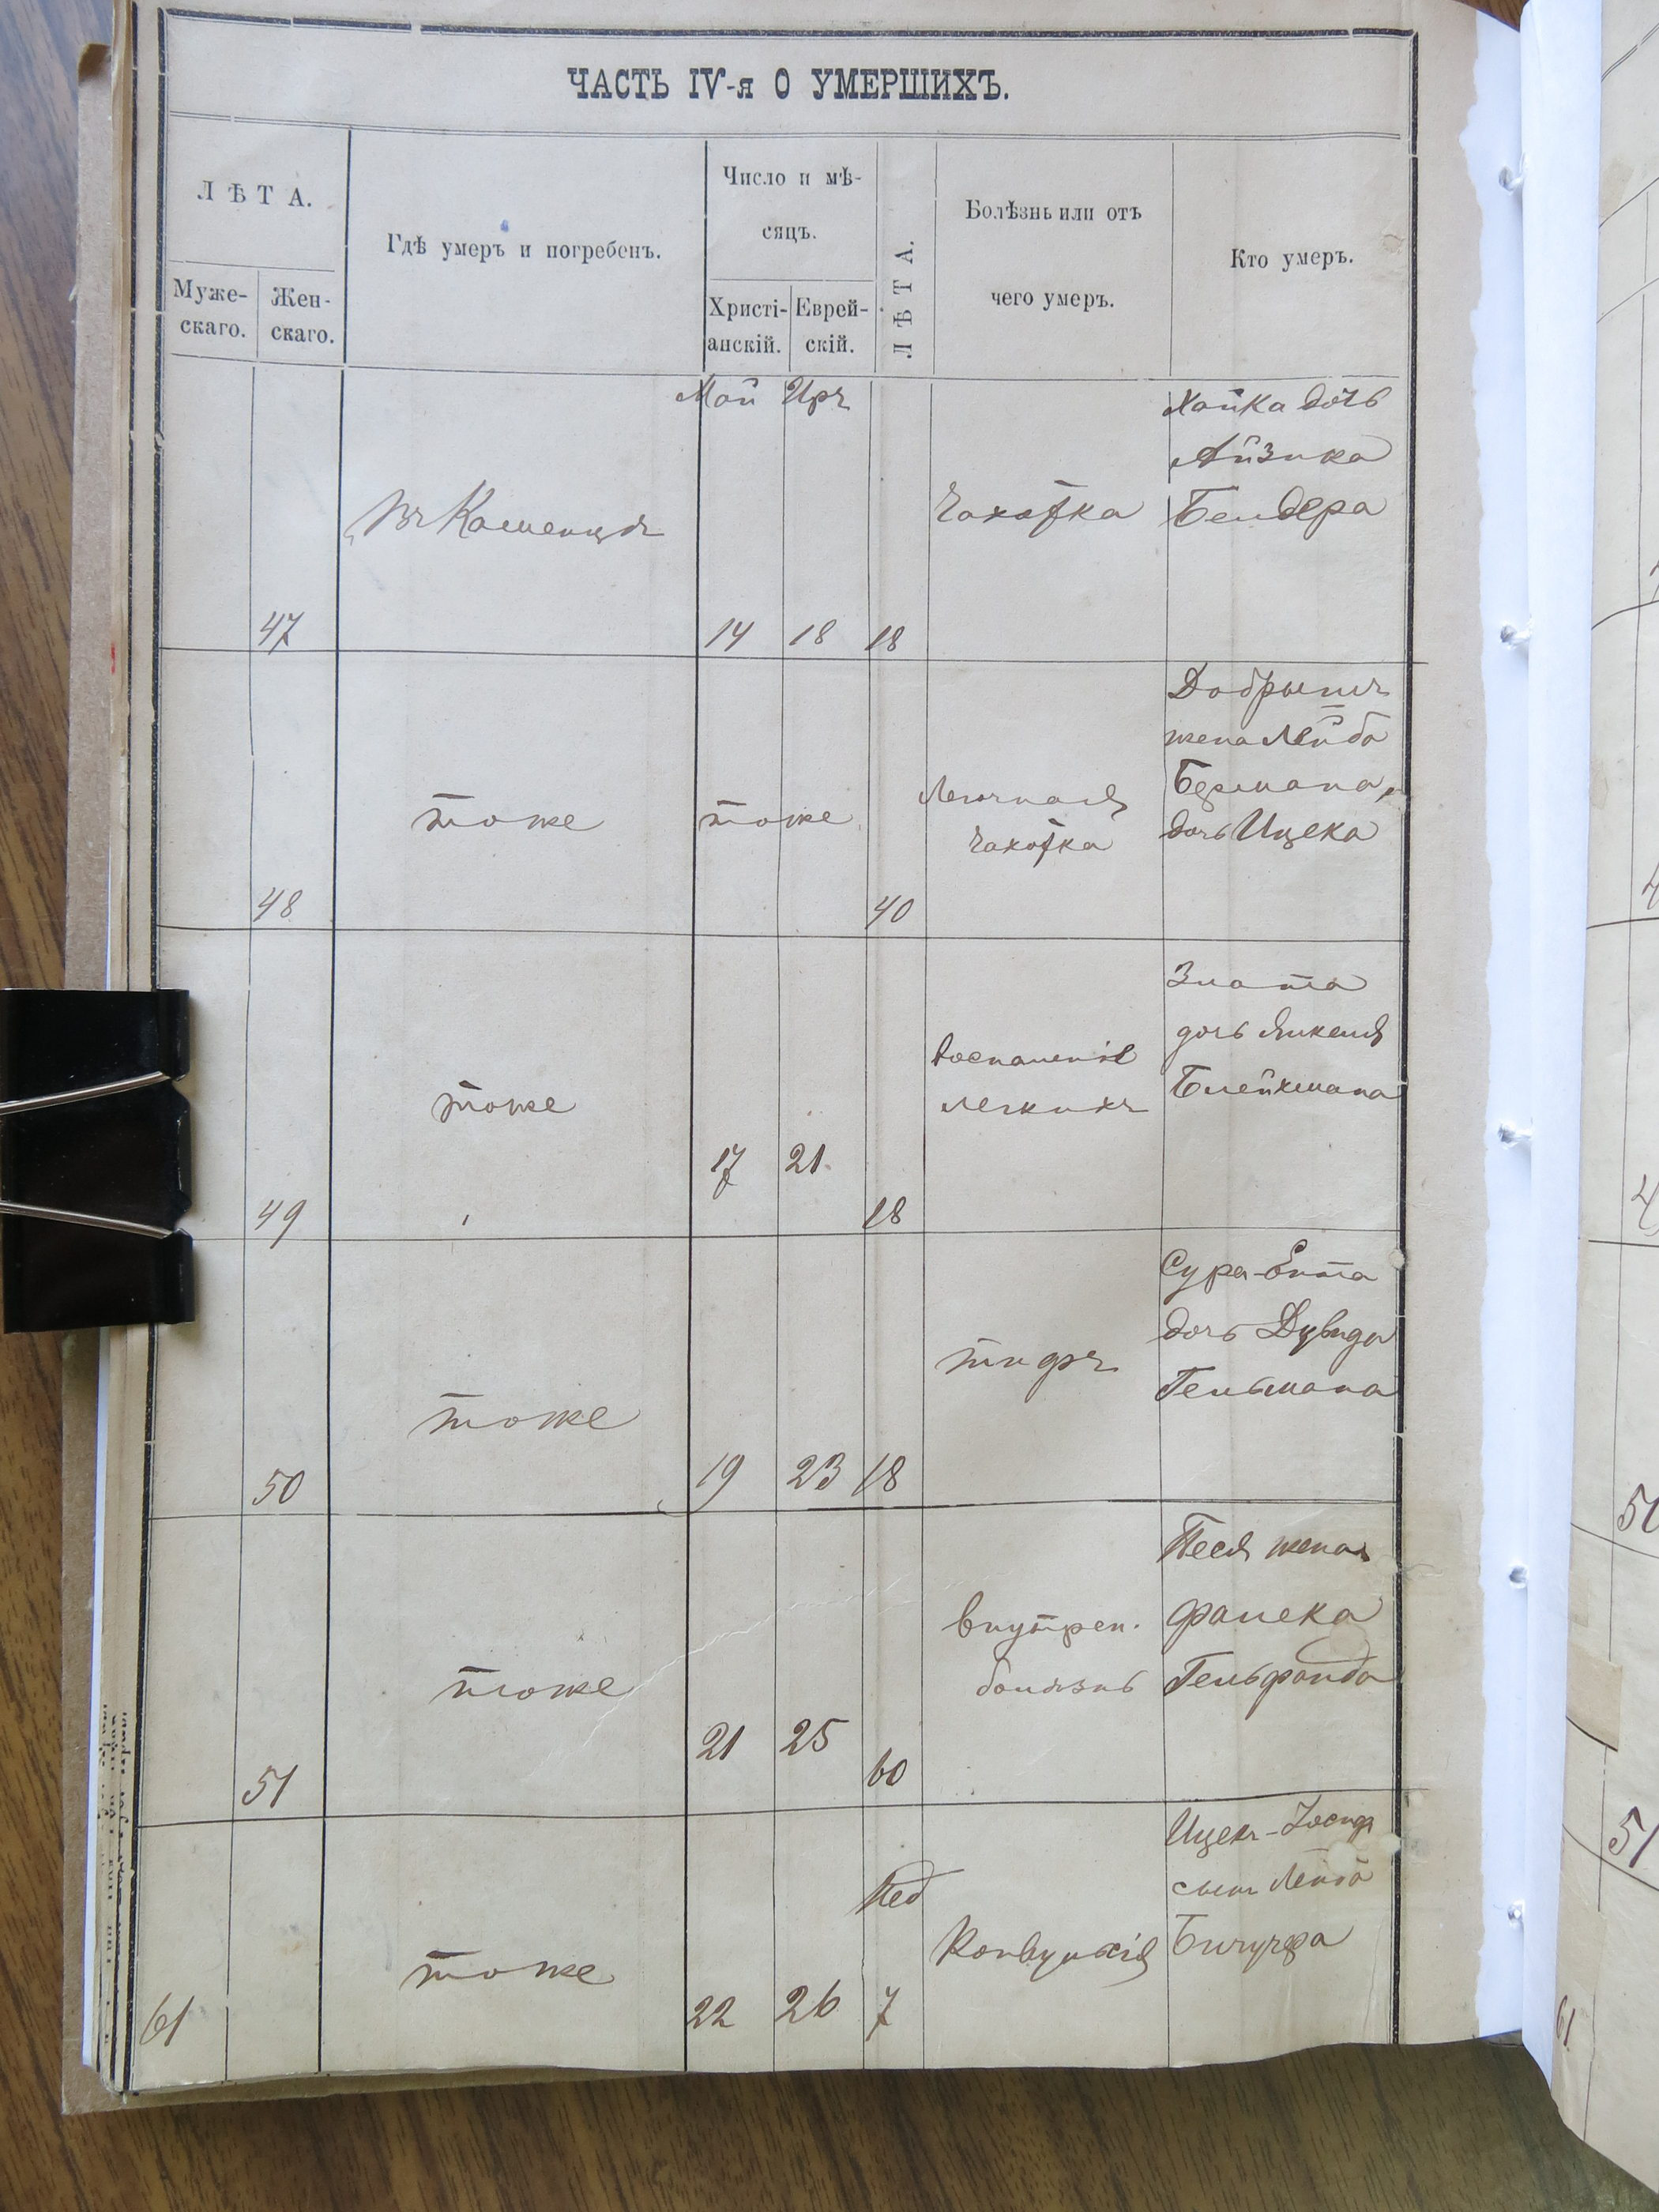 ЧАСТЬ IV-я О УМЕРШИХЪ.
ЛѢТА.
Муже-
скаго.
Жен-
скаго.
Гдѣ умеръ и погребенъ.
Число и мѣ-
сяцъ.
Христі-
анскій.
Еврей-
скій.
ЛѢТА.
Болѣзнь или отъ
чего умеръ.
Кто умеръ.
Май Иръ
47
Въ Каменцѣ
14
18
18
Чахотка
Хайка дочь
Айзика
Бендера
48
тоже
тоже
40
Легочная
чахотка
Добрышъ
жена Лейба
Бермана,
дочь Ицека
49
тоже
17
21
18
Воспаленіе
легкихъ
Злата
дочь Янкеля
Блейхмана
50
тоже
19
23
18
тифъ
Сура-Ента
дочь Дувида
Гельмана
51
тоже
21
25
60
внутрен.
болѣзнь
Песя жена
Фалека
Гельфанда
61
тоже
22
26
Нед
7
Конвульсія
Ицекъ-Іосиф
сынъ Лейба
50
51
61